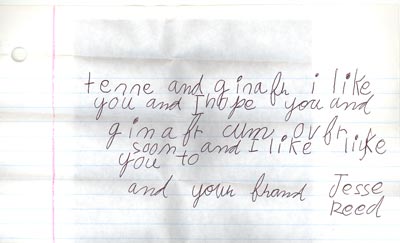 tenne and ginafr i like
you and I hope you and
ginafr cum ovfr
soon and I like like
you to
and your frand Jesse
Reed